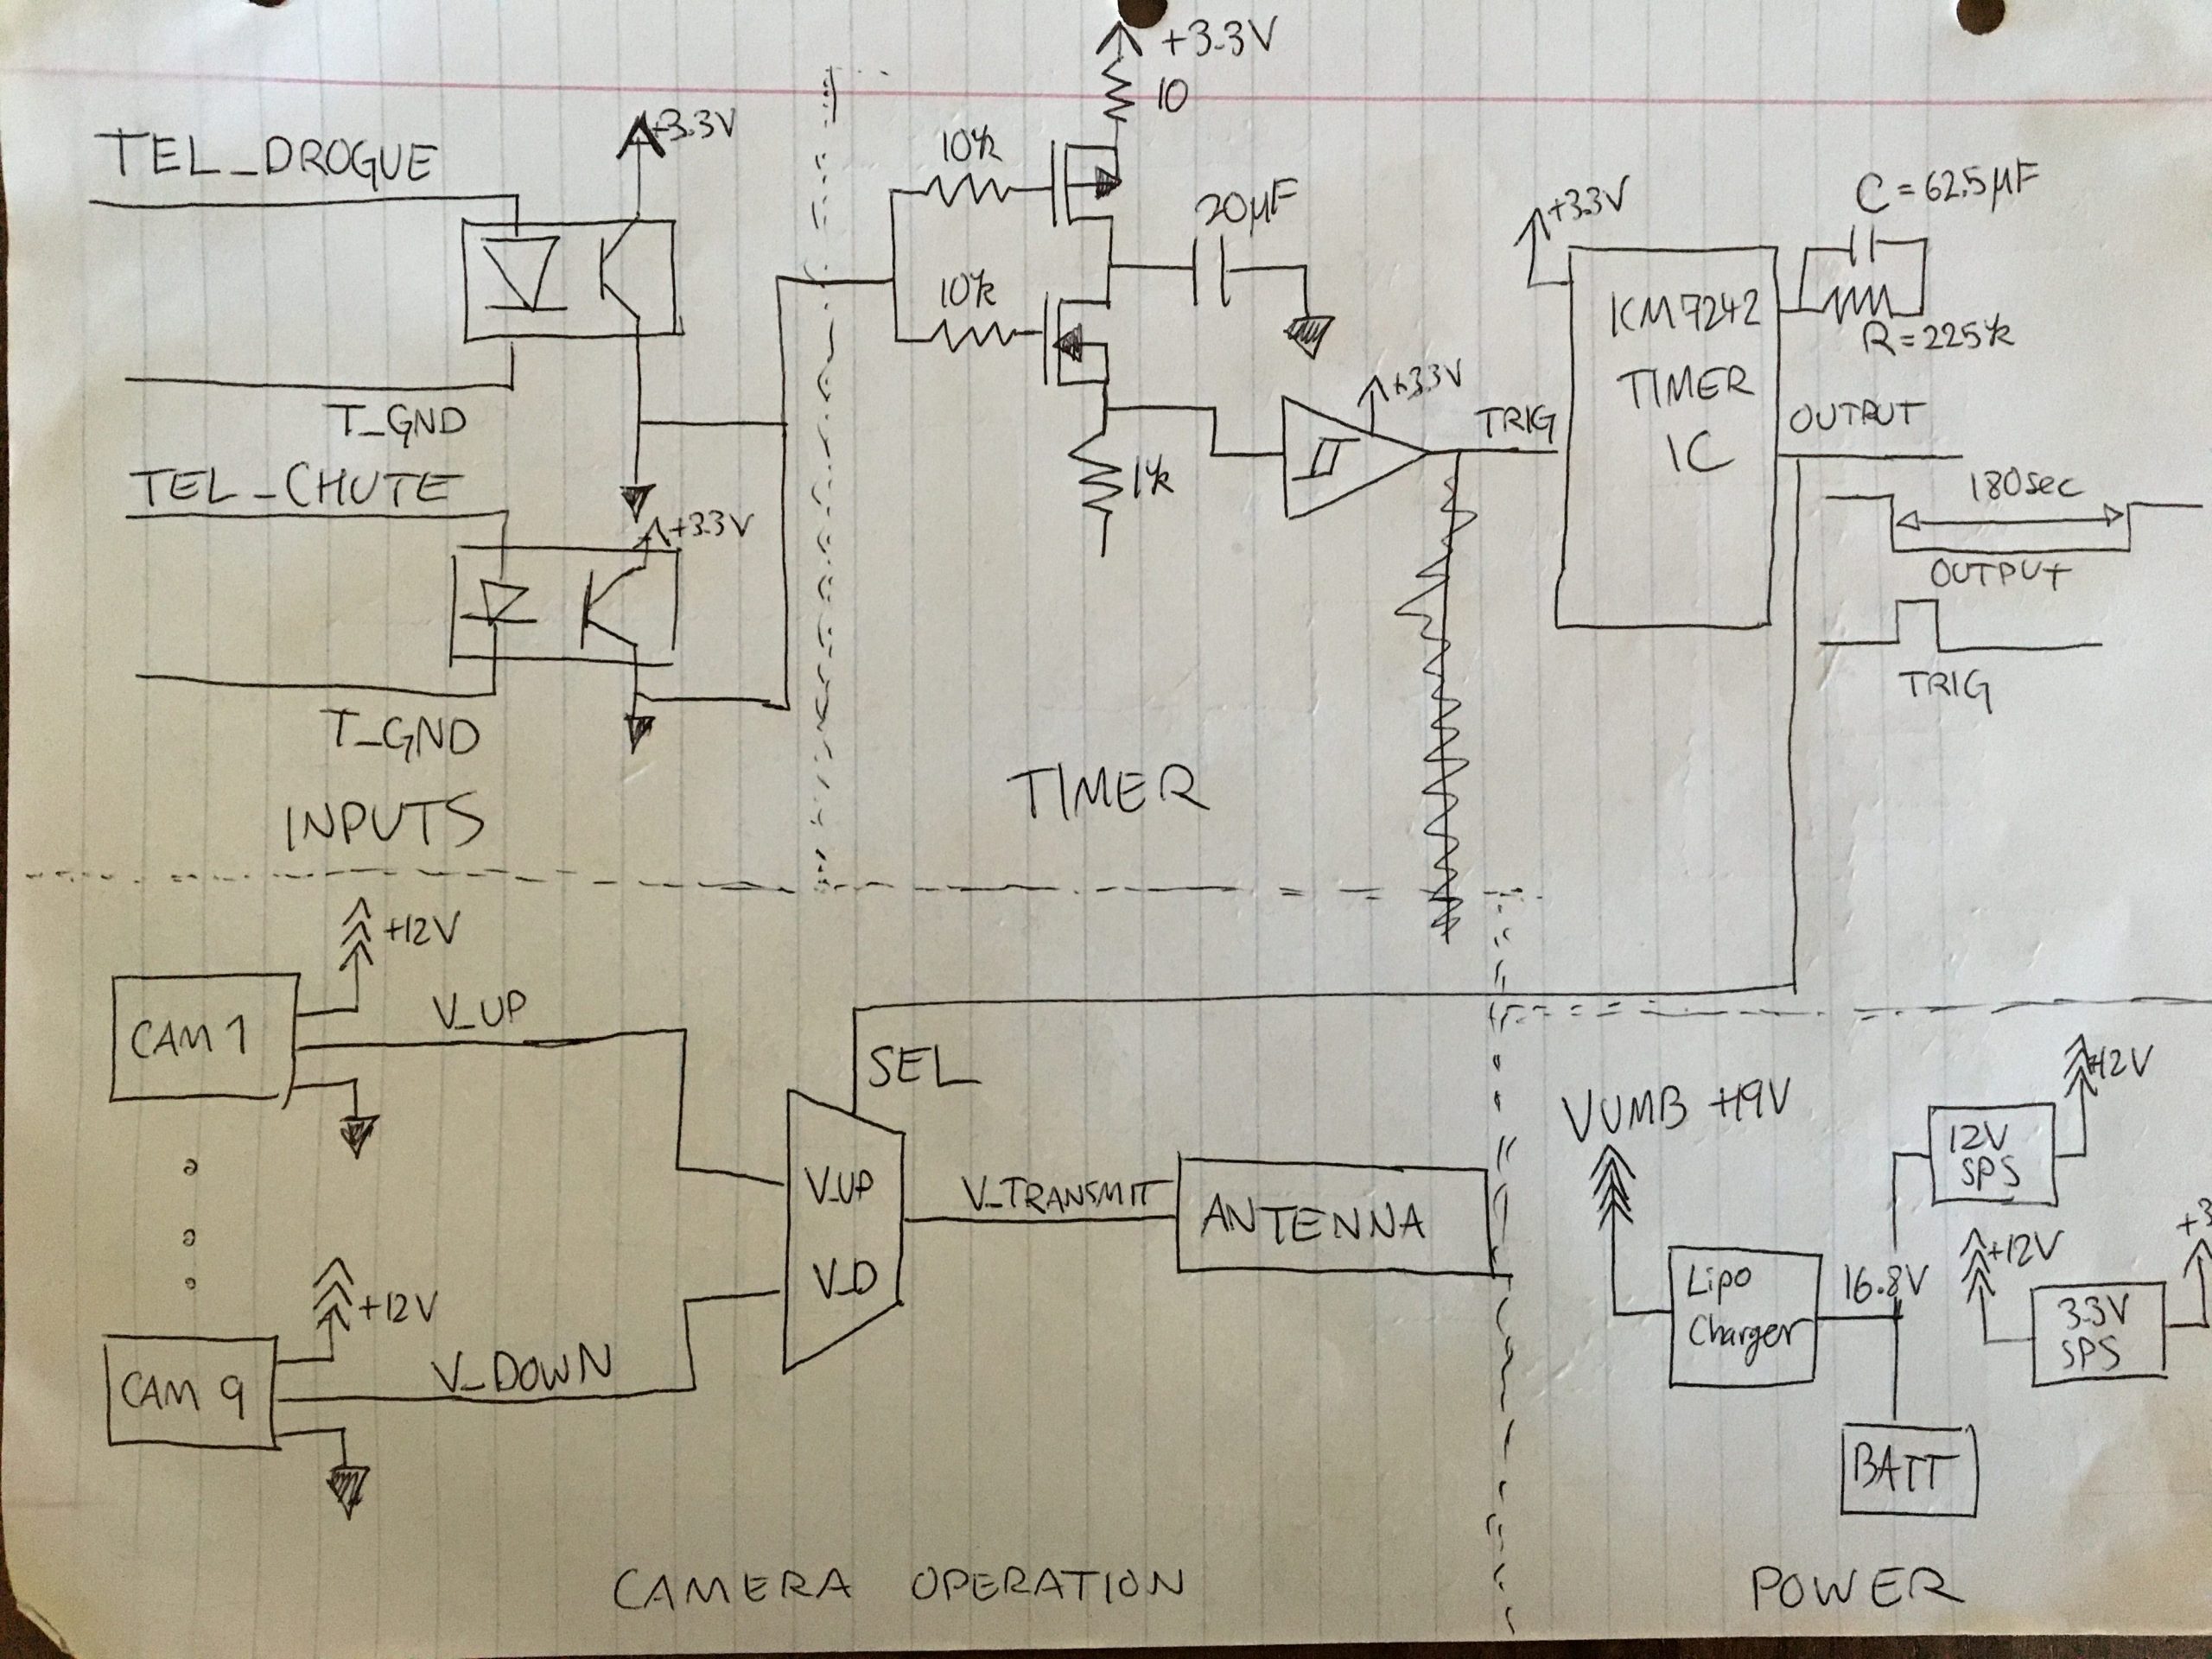 TEL_DROGUE
+3.3V
T_GND
TEL_CHUTE
+3.3V
T_GND
INPUTS
+3.3V
10
10k
20µF
10k
1k
+3.3V
TRIG
TIMER
+3.3V
C = 62.5µF
R = 225k
ICM7242
TIMER
IC
OUTPUT
180sec
OUTPUT
TRIG
+12V
CAM 1
V_UP
+12V
CAM 9
V_DOWN
SEL
V_UP
V_D
V_TRANSMIT
ANTENNA
CAMERA OPERATION
VUMB +19V
+12V
12V
SPS
Lipo
Charger
16.8V
+12V
+3
3.3V
SPS
BATT
POWER